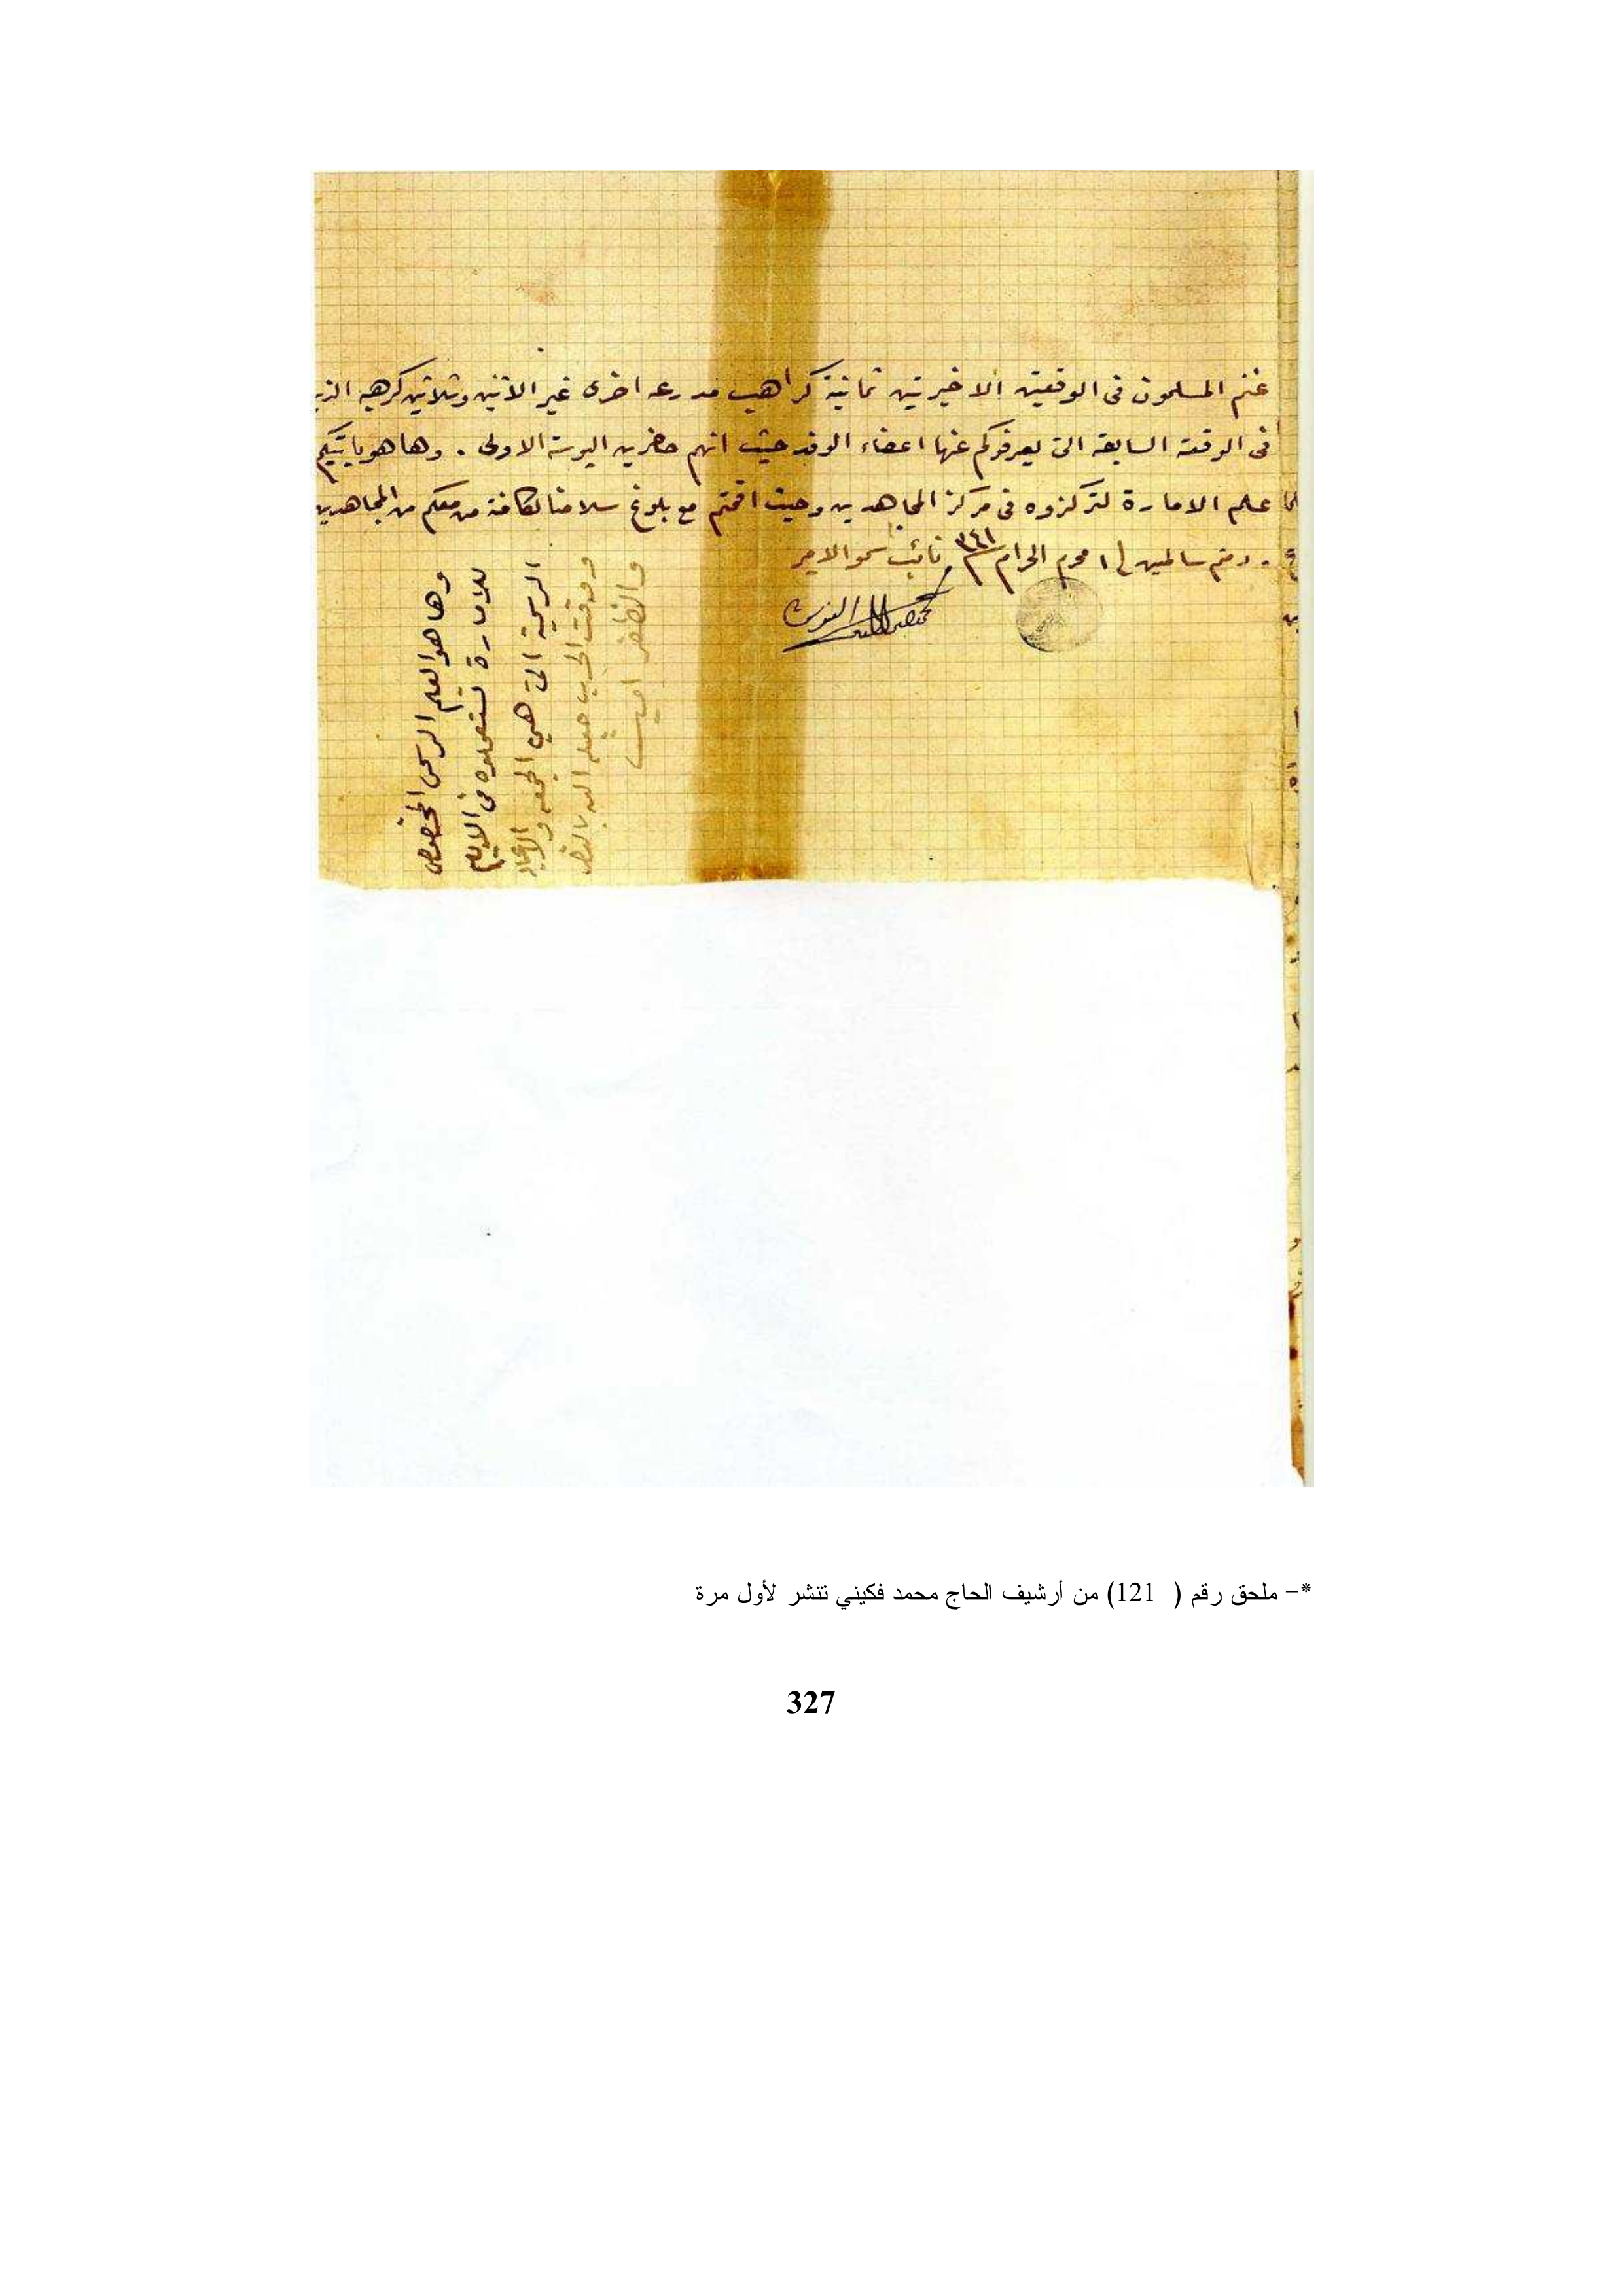 غنم المسلمون فى الوقعتين الاخيرتين ثمانية كراهيب مدرعه اخرى غير الاثنين وثلاثين كرهيبه الذين
فى الوقعة السابقة التى يعرفوكم عنها اعضاء الوفد حيث انهم حاضرين البوسته الاولى . وها هو ياتيكم
علم الامارة لتركزوه فى مركز المجاهدين وحيث اقمتم مع بلوغ سلامنا لكافة من معكم من المجاهدين
. دمتم سالمين فى ١ محرم الحرام ٣٤١ نائب سمو الامير
وها هو العلم الرسمى المخصوص
للامارة تستعملوه فى الايام
الرسمية التى هي الجمعه والاعياد
ووقت الحرب جعله الله بالنصر
والظفر اميـن
*– ملحق رقم ( 121) من أرشيف الحاج محمد فكيني تنشر لأول مرة
327